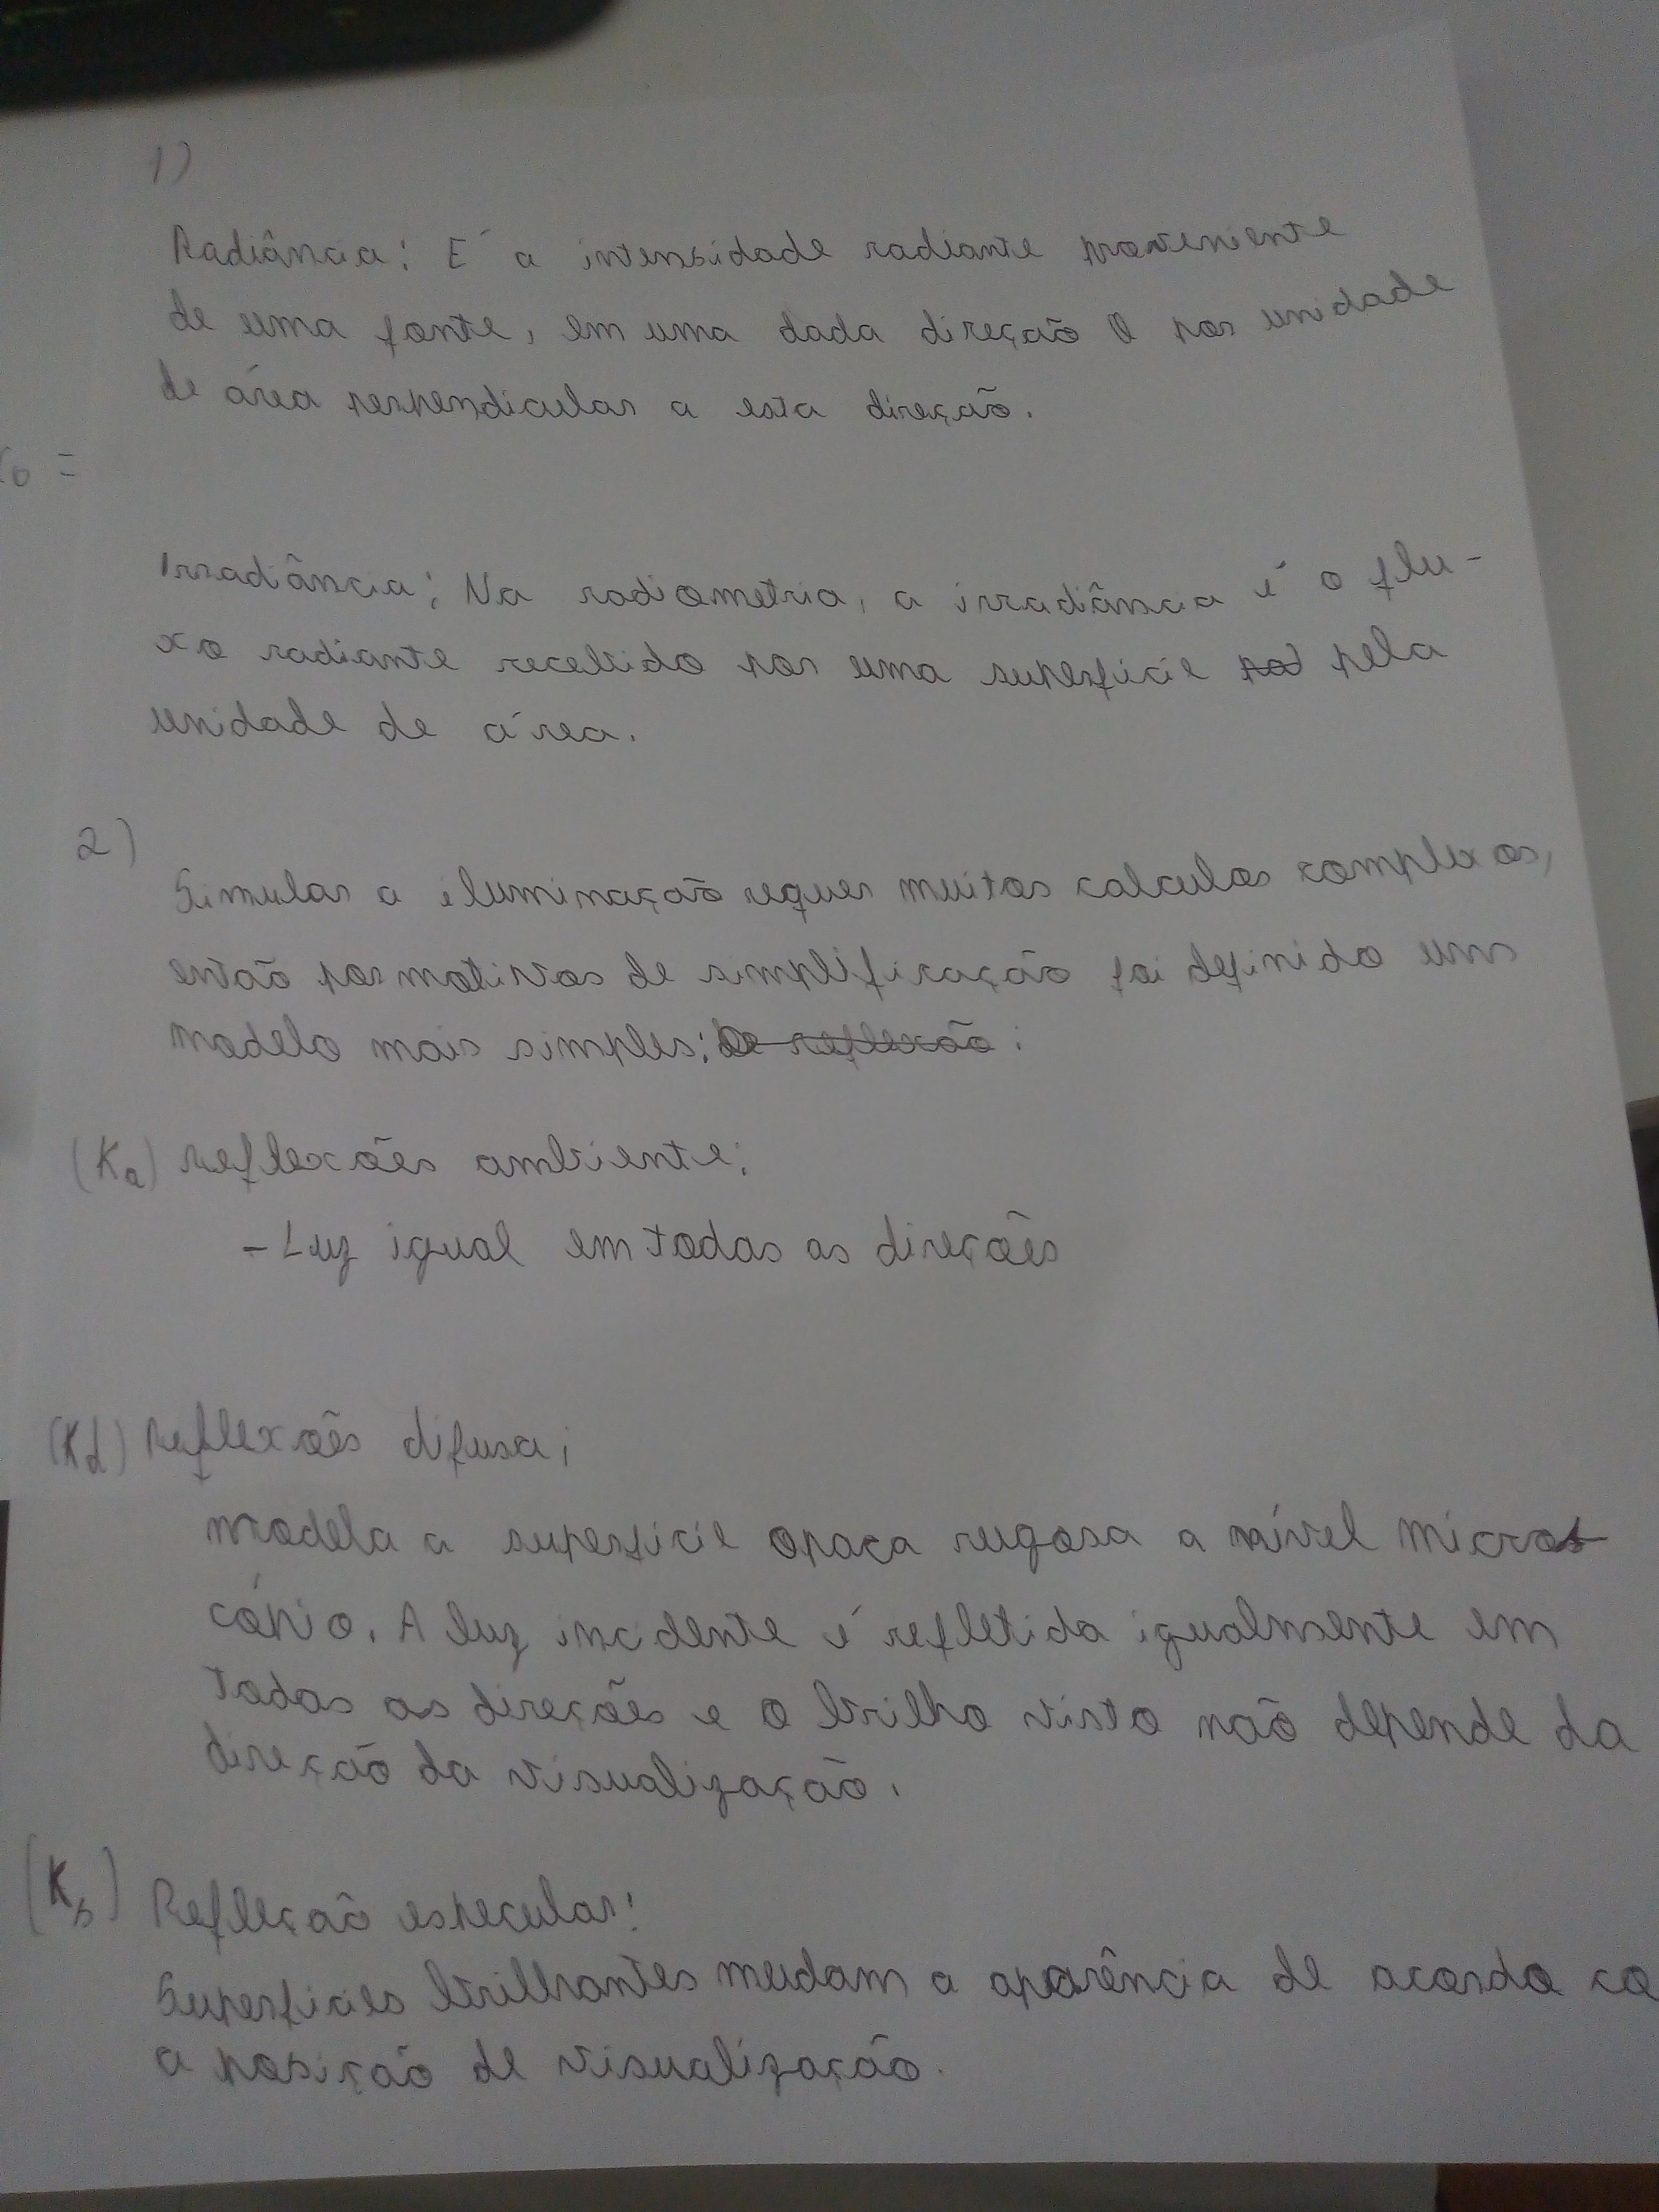 1)
Radiância: É a intensidade radiante proveniente
de uma fonte, em uma dada direção O por unidade
de área perpendicular a esta direção.
=
Irradiância: Na radiometria, a irradiância é o flu-
xo radiante recebido por uma superfície pela
unidade de área.
2)
Simular a iluminação requer muitos calculos complexos,
então por motivos de simplificação foi definido um
modelo mais simples: de reflexão:
(Ka) reflexões ambiente:
- Luz igual em todas as direções
(Kd) Reflexões difusa:
Modela a superfície opaca rugosa a nível micros
cópio. A luz incidente é refletida igualmente em
todas as direções e o brilho visto não depende da
direção da visualização.
(Ks) Refleção especular:
Superficies brilhantes mudam a aparência de acordo co
a posição de visualização.